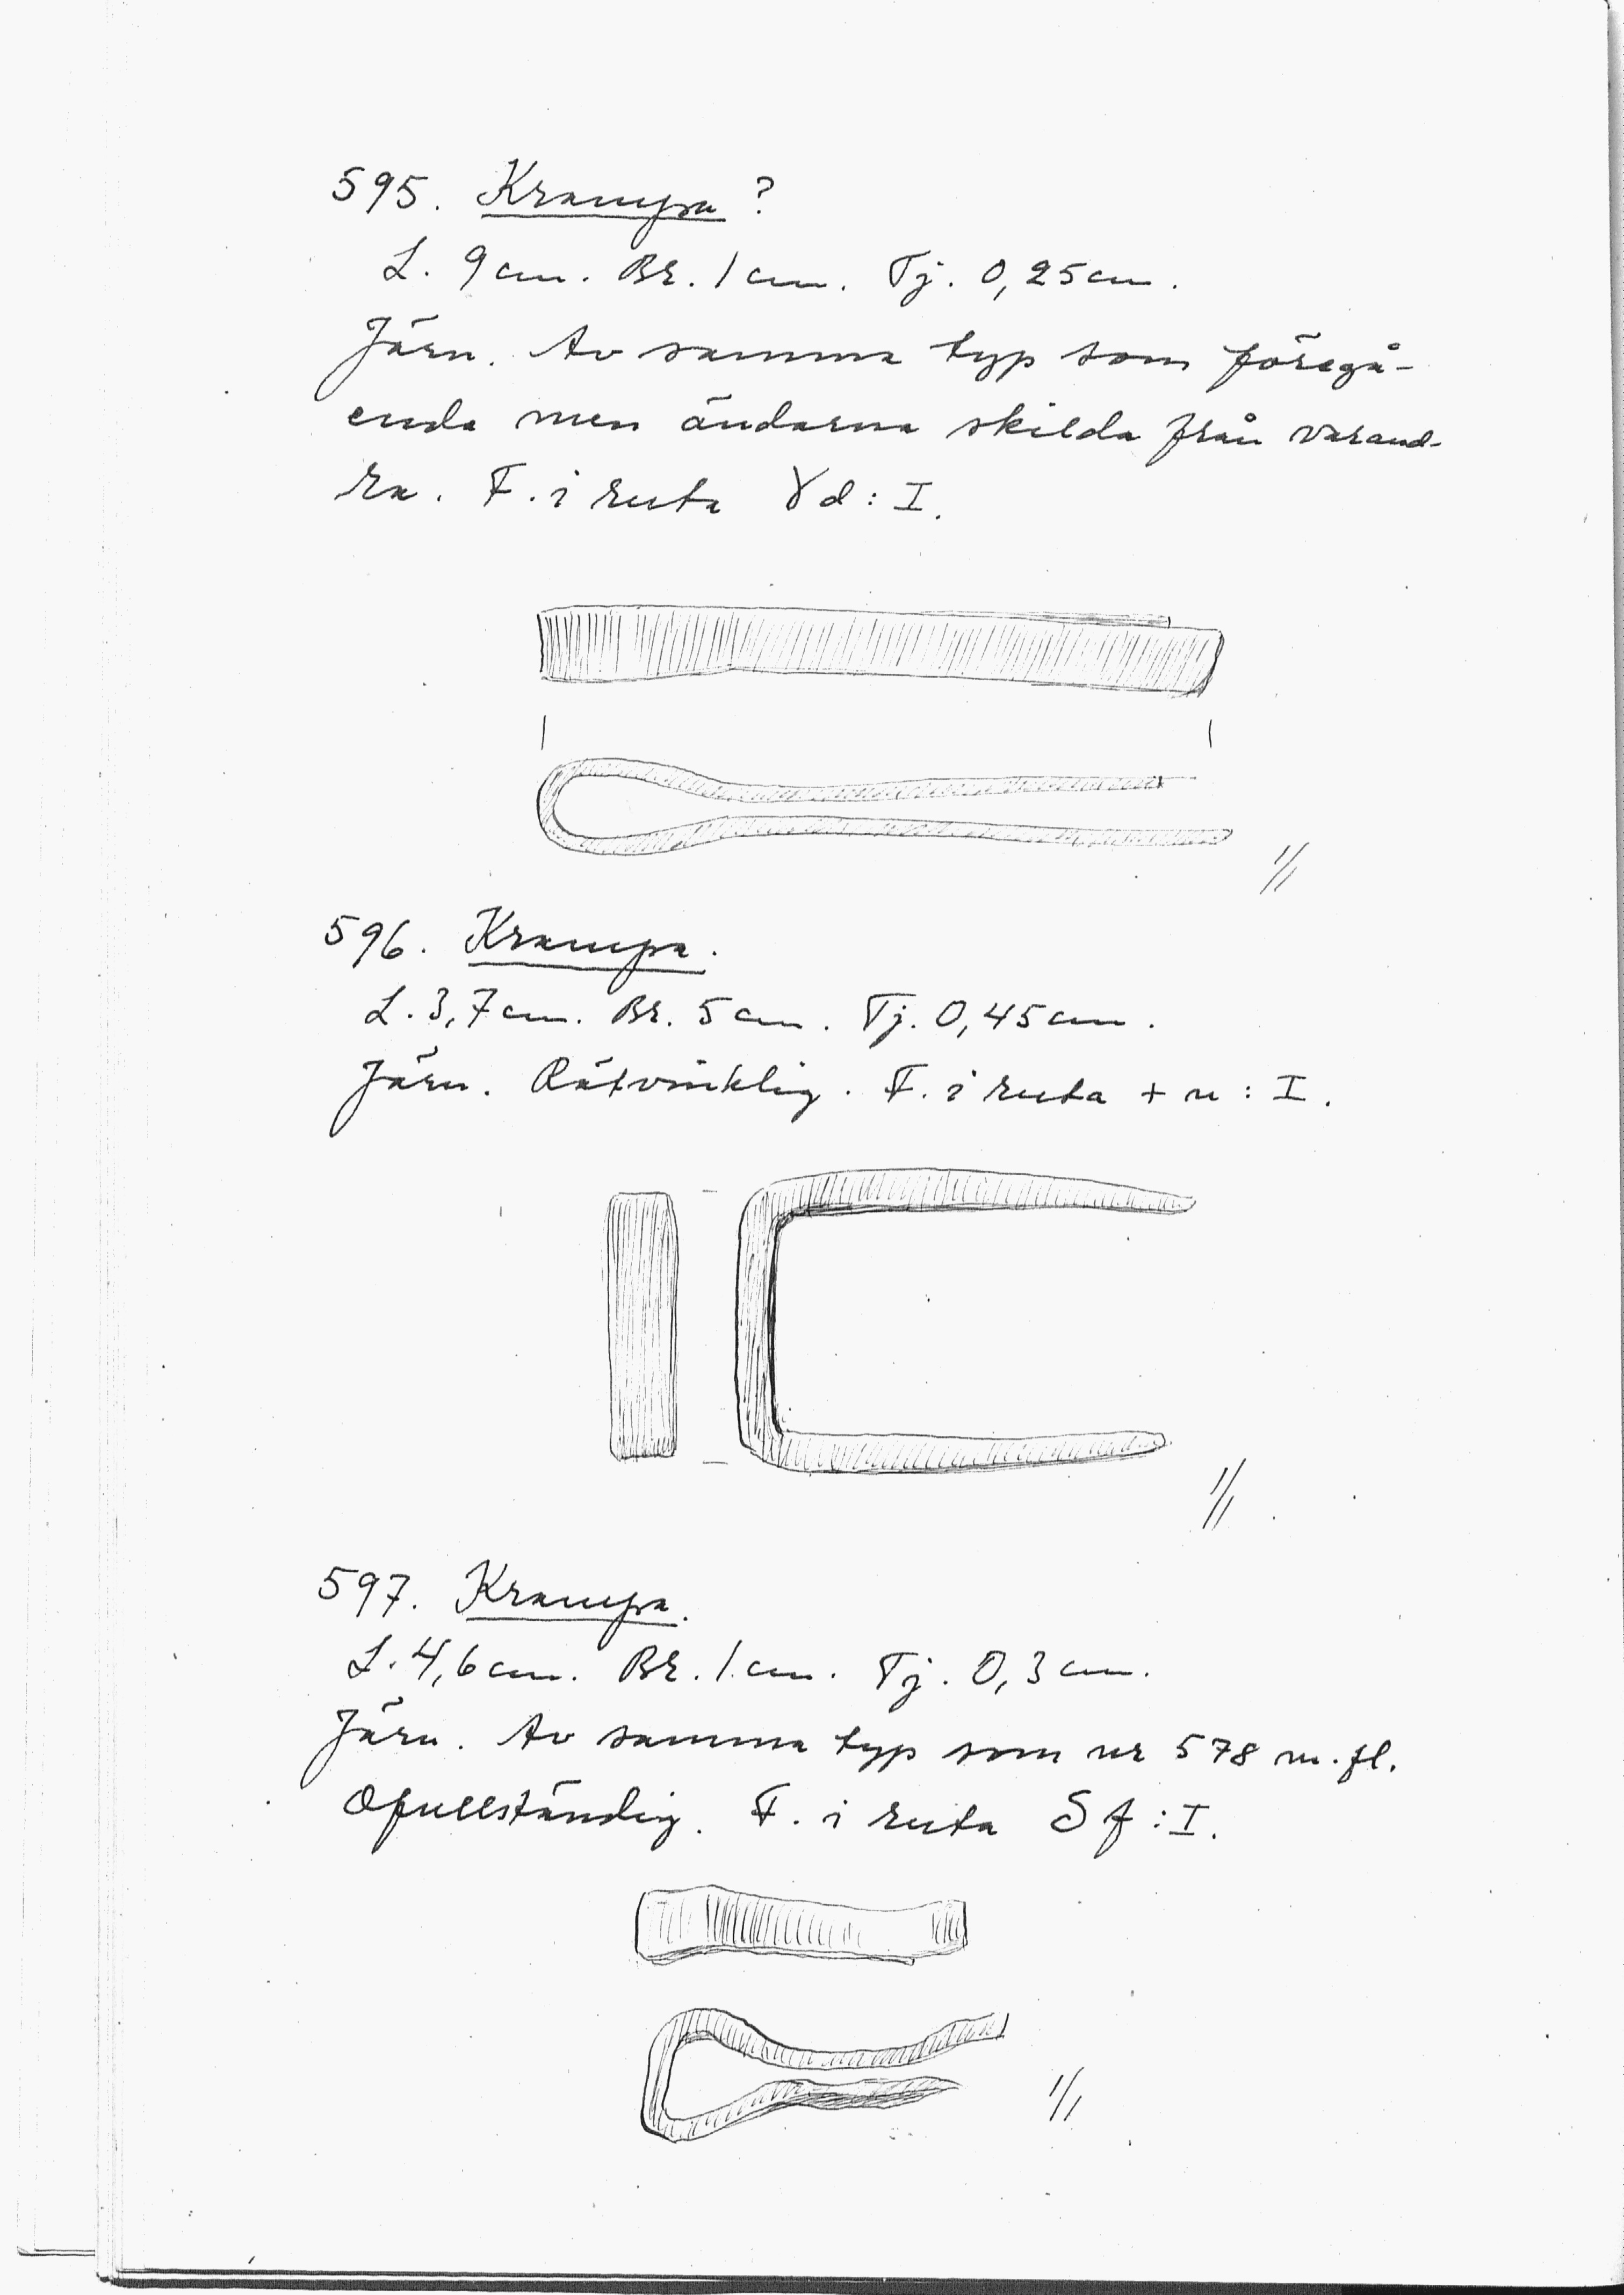 595. Krampa ?
L. 9 cm. Br. 1 cm. Tj. 0,25 cm.
Järn. Av samma typ som föregå-
ende men ändarna skilda från varand-
ra. F. i ruta γd : I.
1/1
596. Krampa.
L. 3,7 cm. Br. 5 cm. Tj. 0,45 cm.
Järn. Rätvinklig. F. i ruta + n : I.
1/1
597. Krampa.
L. 4,6 cm. Br. 1 cm. Tj. 0,3 cm.
Järn. Av samma typ som nr 578 m. fl.
Ofullständig. F. i ruta S f : I.
1/1